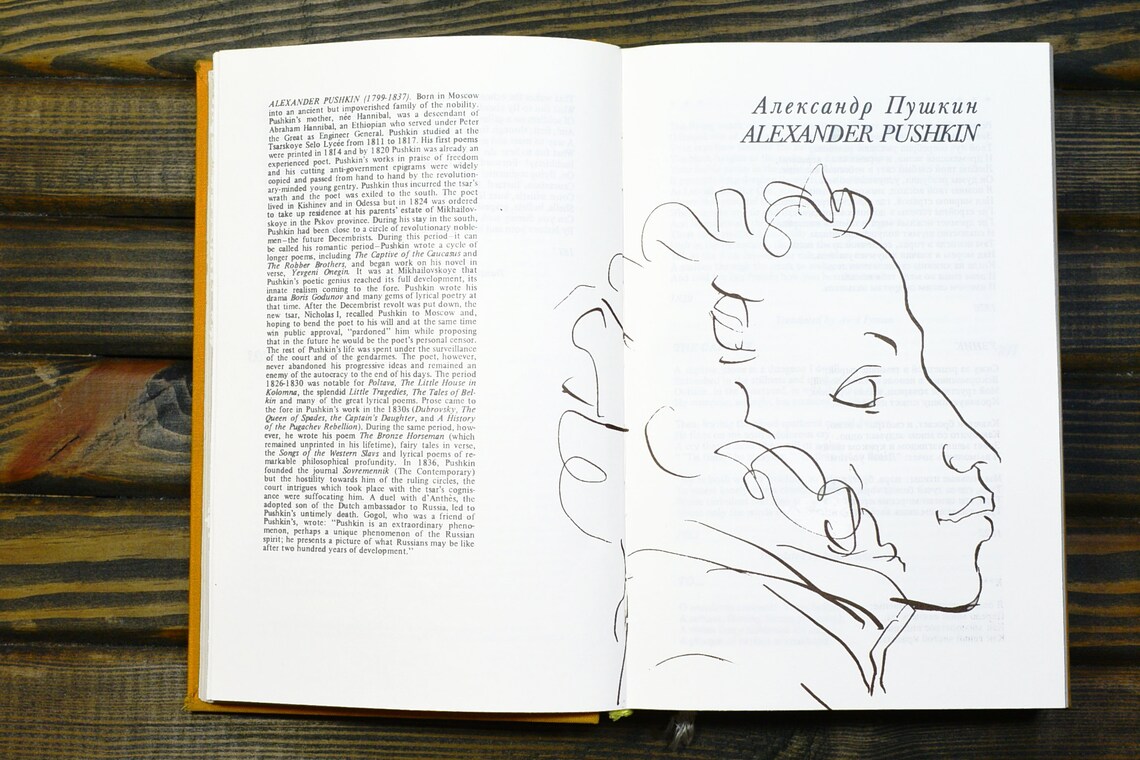 ALEXANDER PUSHKIN (1799-1837). Born in Moscow
into an ancient but impoverished family of the nobility,
Pushkin's mother, née Hannibal, was a descendant of
Abraham Hannibal, an Ethiopian who served under Peter
the Great as Engineer General. Pushkin studied at the
Tsarskoye Selo Lycée from 1811 to 1817. His first poems
were printed in 1814 and by 1820 Pushkin was already an
experienced poet. Pushkin's works in praise of freedom
and his cutting anti-government epigrams were widely
copied and passed from hand to hand by the revolution-
ary-minded young gentry. Pushkin thus incurred the tsar's
wrath and the poet was exiled to the south. The poet
lived in Kishinev and in Odessa but in 1824 was ordered
to take up residence at his parents' estate of Mikhailov-
skoye in the Pskov province. During his stay in the south,
Pushkin had been close to a circle of revolutionary noble-
men—the future Decembrists. During this period—it can
be called his romantic period—Pushkin wrote a cycle of
longer poems, including The Captive of the Caucasus and
The Robber Brothers, and began work on his novel in
verse, Yevgeni Onegin. It was at Mikhailovskoye that
Pushkin's poetic genius reached its full development, its
innate realism coming to the fore. Pushkin wrote his
drama Boris Godunov and many gems of lyrical poetry at
that time. After the Decembrist revolt was put down, the
new tsar, Nicholas I, recalled Pushkin to Moscow and,
hoping to bend the poet to his will and at the same time
win public approval, "pardoned" him while proposing
that in the future he would be the poet's personal censor.
The rest of Pushkin's life was spent under the surveillance
of the court and of the gendarmes. The poet, however,
never abandoned his progressive ideas and remained an
enemy of the autocracy to the end of his days. The period
1826-1830 was notable for Poltava, The Little House in
Kolomna, the splendid Little Tragedies, The Tales of Bel-
kin and many of the great lyrical poems. Prose came to
the fore in Pushkin's work in the 1830s (Dubrovsky, The
Queen of Spades, the Captain's Daughter, and A History
of the Pugachev Rebellion). During the same period, how-
ever, he wrote his poem The Bronze Horseman (which
remained unprinted in his lifetime), fairy tales in verse,
the Songs of the Western Slavs and lyrical poems of re-
markable philosophical profundity. In 1836, Pushkin
founded the journal Sovremennik (The Contemporary)
but the hostility towards him of the ruling circles, the
court intrigues which took place with the tsar's cognis-
ance were suffocating him. A duel with d'Anthès, the
adopted son of the Dutch ambassador to Russia, led to
Pushkin's untimely death. Gogol, who was a friend of
Pushkin's, wrote: "Pushkin is an extraordinary pheno-
menon, perhaps a unique phenomenon of the Russian
spirit; he presents a picture of what Russians may be like
after two hundred years of development."
Александр Пушкин
ALEXANDER PUSHKIN